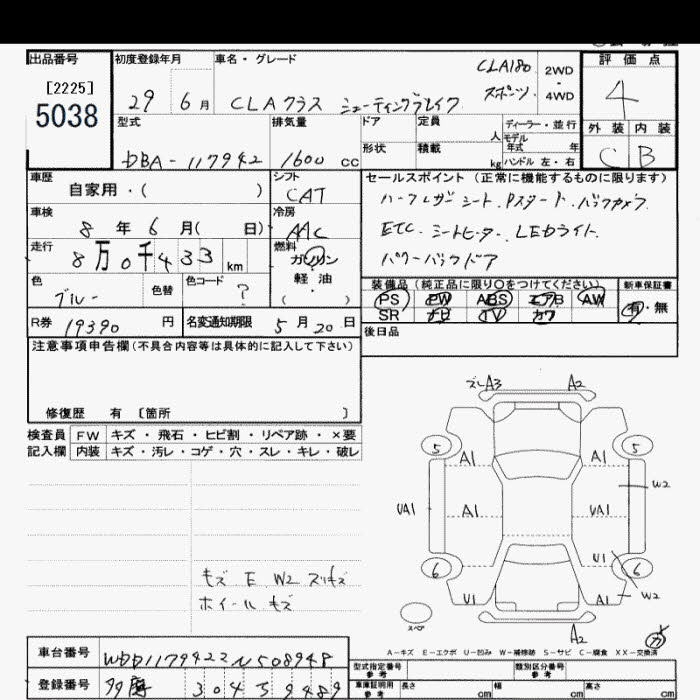 出品番号
[2225]
5038
初度登録年月
29 6月
車名・グレード
CLA180
スポーツ
CLAクラス シューティングブレイク
2WD
・
4WD
評価点
4
外装 内装
C B
型式
DBA-117942
排気量
1600 cc
ドア
定員
人
形状
積載
kg
ディーラー・並行
モデル
年式 年
ハンドル 左・右
車歴
自家用・( )
シフト
CAT
車検
8年6月( 日)
冷房
AAC
走行
8万0千433km
燃料
ガソリン
軽・油
( )
色
ブルー
色替
色コード
?
R券
19390円
名変通知期限
5月20日
セールスポイント (正常に機能するものに限ります)
ハーフレザーシート.Pスタート.バックカメラ.
ETC.シートヒーター.LEDライト.
パワーバックドア
装備品 (純正品に限り〇をつけてください)
PS PW ABS エアB AW
SR ナビ TV カワ
新車保証書
有・無
後日品
注意事項申告欄(不具合内容等は具体的に記入して下さい)
修復歴 有 〔箇所 〕
検査員
記入欄
FW キズ・飛石・ヒビ割・リペア跡・×要
内装 キズ・汚レ・コゲ・穴・スレ・キレ・破レ
キズ E W2 スリキズ
ホイールキズ
ズレA3 A2
5 5
A1 A1
W2
UA1 A1 UA1
U1
6 6
U1 A1 W2
スペア
A2
A-キズ E-エクボ U-凹み W-補修跡 S-サビ C-腐食 XX-交換済
車台番号
WDD1179422N508948
登録番号
多摩 304 59489
型式指定番号
参考
類別区分番号
参考
車庫証明用
参考
長さ cm 幅 cm 高さ cm